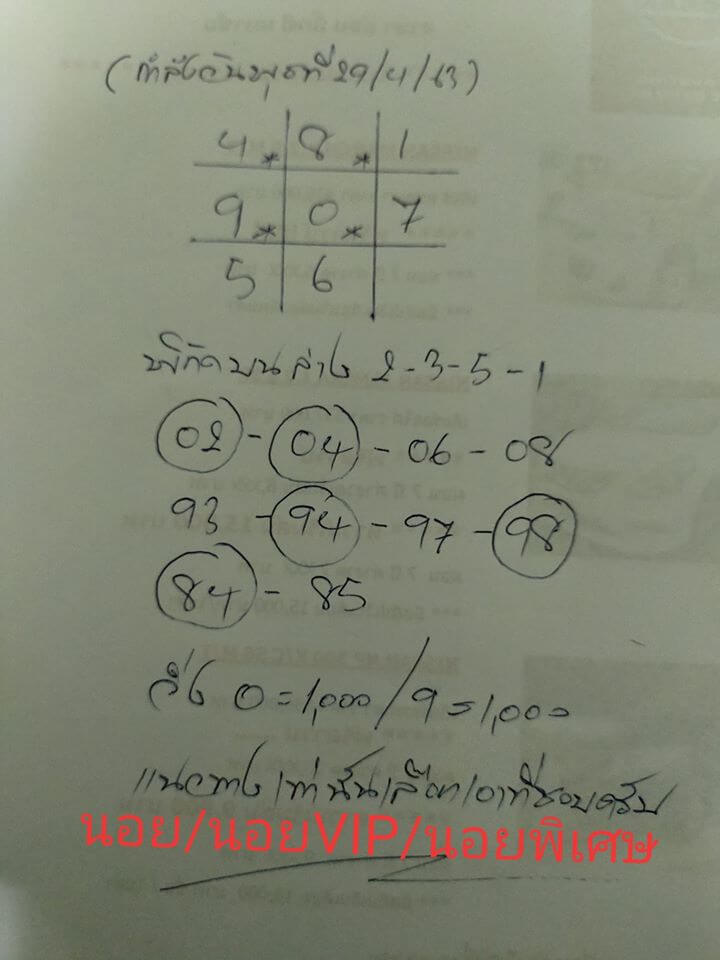 (กำลังวันพุธที่ 29/4/63)
4 * 8 * 1
9 * 0 * 7
5 6
พิกัดบนล่าง 2-3-5-1
02 - 04 - 06 - 08
93 - 94 - 97 - 98
84 - 85
วิ่ง 0=1,000/9=1,000
แนวทางเท่านั้นเลือกเอาที่ชอบครับ
นอย/นอยVIP/นอยพิเศษ